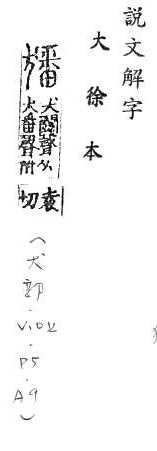 說文解字
大徐本
犬鬬聲从
犬番聲附
袁
切
（犬部．V10上．P5．A9）